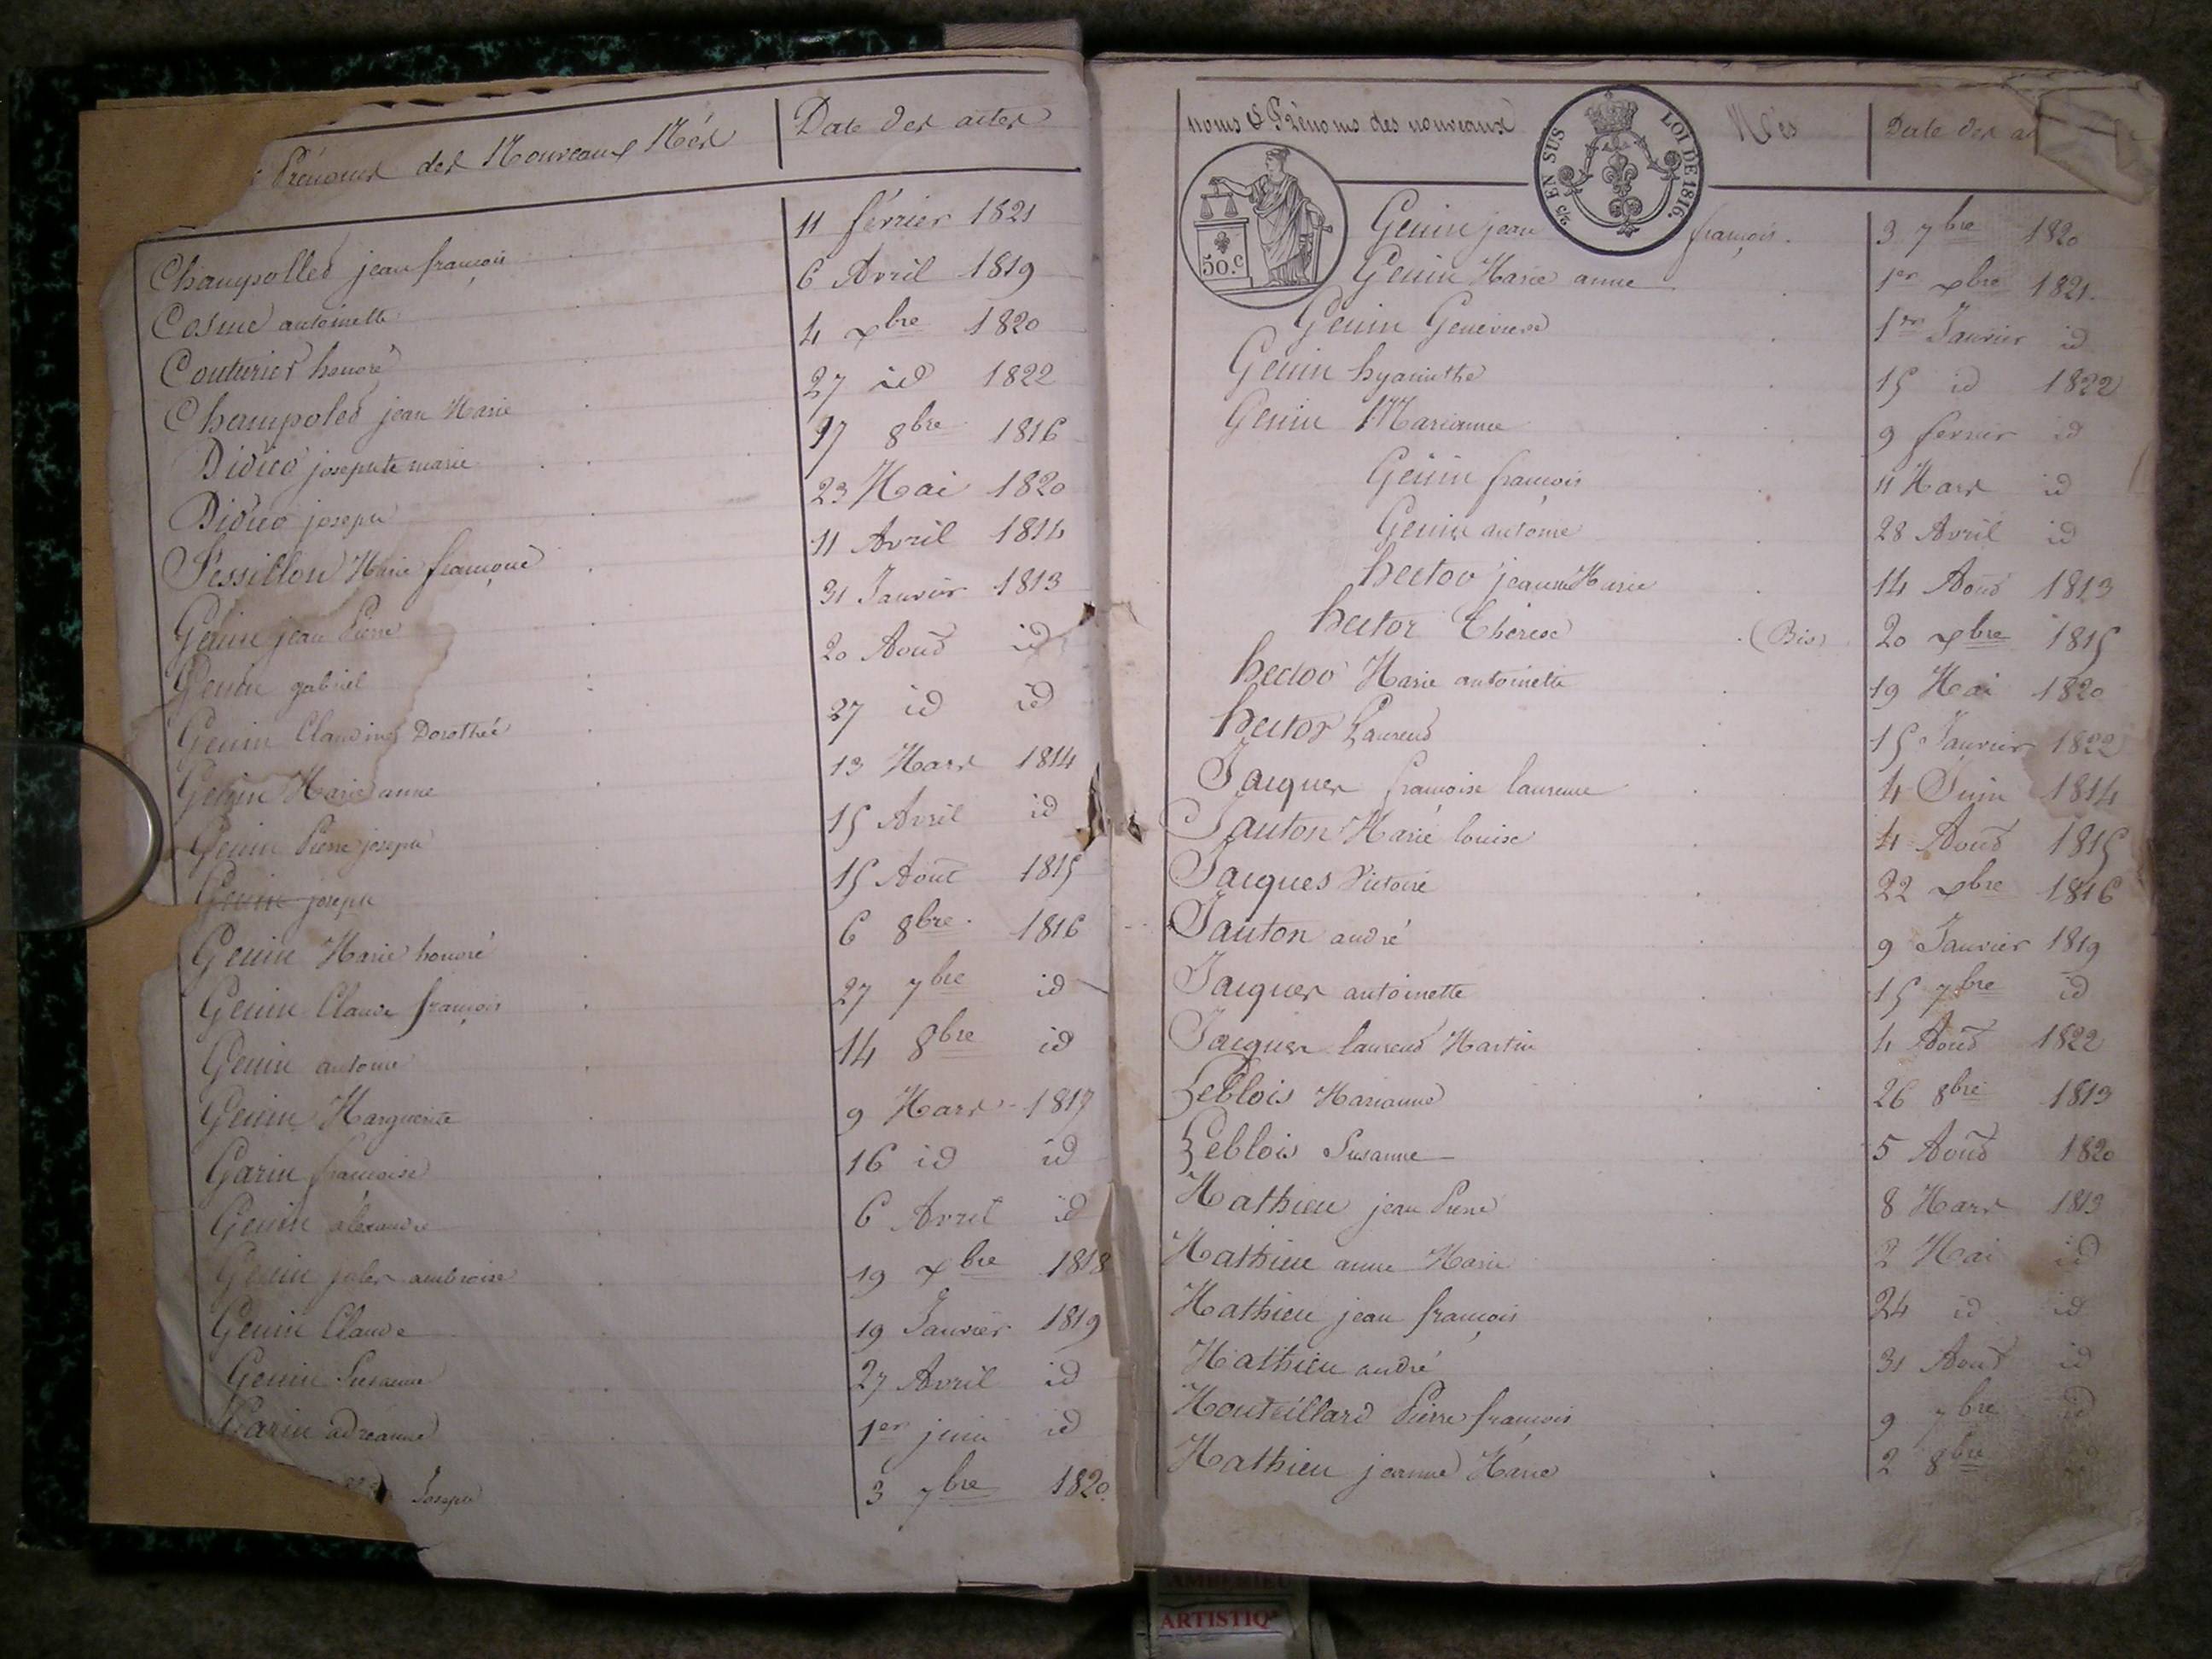 Prénoms des Nouveaux Nés Date des actes
Champolled jean françois 11 février 1821
Cosme antoinette 6 Avril 1819
Couturier honoré 4 xbre 1820
Champoled jean Marie 27 id 1822
Diduo josephte marie 17 8bre 1816
Diduo joseph 23 Mai 1820
Fessillon Marie françoise 11 Avril 1814
Genin jean Pierre 31 Janvier 1813
Genin gabriel 20 Aoud id
Genin Claudine Dorothée 27 id id
Genin Marie anne 13 Mars 1814
Genin Pierre joseph 15 Avril id
Genin joseph 15 Aout 1815
Genin Marie honoré 6 8bre 1816
Genin Claude françois 27 7bre id
Genin antoine 14 8bre id
Genin Marguerite 9 Mars 1817
Garin françoise 16 id id
Genin alexandre 6 Avril id
Genin jules ambroise 19 xbre 1818
Genin Claude 19 Janvier 1819
Genin Susanne 27 Avril id
Garin adreanne 1er juin id
Joseph 3 7bre 1820
noms & Prénoms des nouveaux Nés Date des
C/es EN SUS LOI DE 1816.
50.c
Genin jean françois 3 7bre 1820
Genin Marie anne 1er xbre 1821
Genin Genevieve 1er Janvier id
Genin hyacinthe 15 id 1822
Genin Marianne 9 fevrier id
Genin françois 11 Mars id
Genin antoine 28 Avril id
hector jeanne Marie 14 Aoud 1813
hector Thérese (Bis) 20 xbre 1815
hector Marie antoinette 19 Mai 1820
hector Laurend 15 Janvier 1822
Jacques françoise laurence 4 Juin 1814
Janton Marie louise 4 Aoud 1815
Jacques Victoire 22 xbre 1816
Janton andré 9 Janvier 1819
Jacques antoinette 15 7bre id
Jacques laurend Martin 4 Aoud 1822
Leblois Marianne 26 8bre 1813
Leblois Susanne 5 Aoud 1820
Mathieu jean Pierre 8 Mars 1813
Mathieu anne Marie 2 Mai id
Mathieu jean françois 24 id id
Mathieu andré 31 Aoud id
Monteillard Pierre françois 9 7bre id
Mathieu jeanne Marie 2 8bre
AMBERIEU
ARTISTIQ